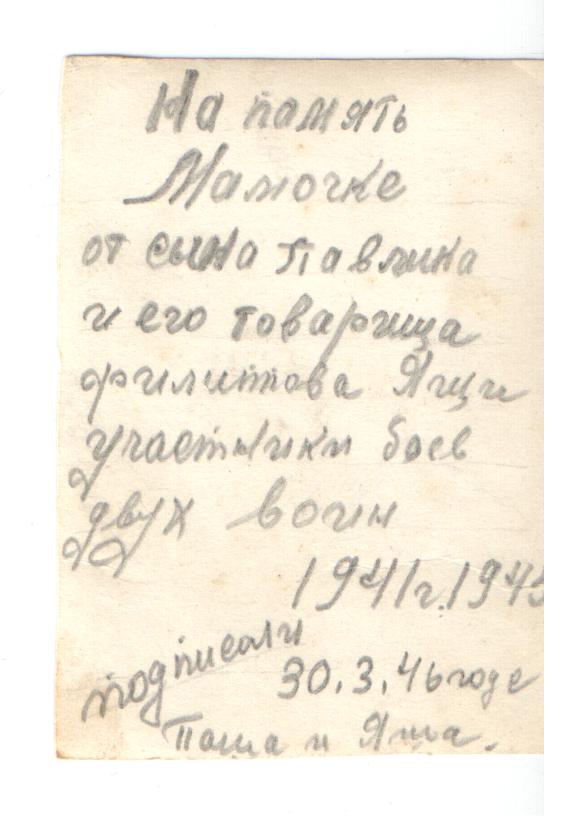 На память
Мамочке
от сына Павлика
и его товарища
филипова Яши
участники боев
двух воин
1941г. 1945
подписали
30.3.46 годе
Паша и Яша.